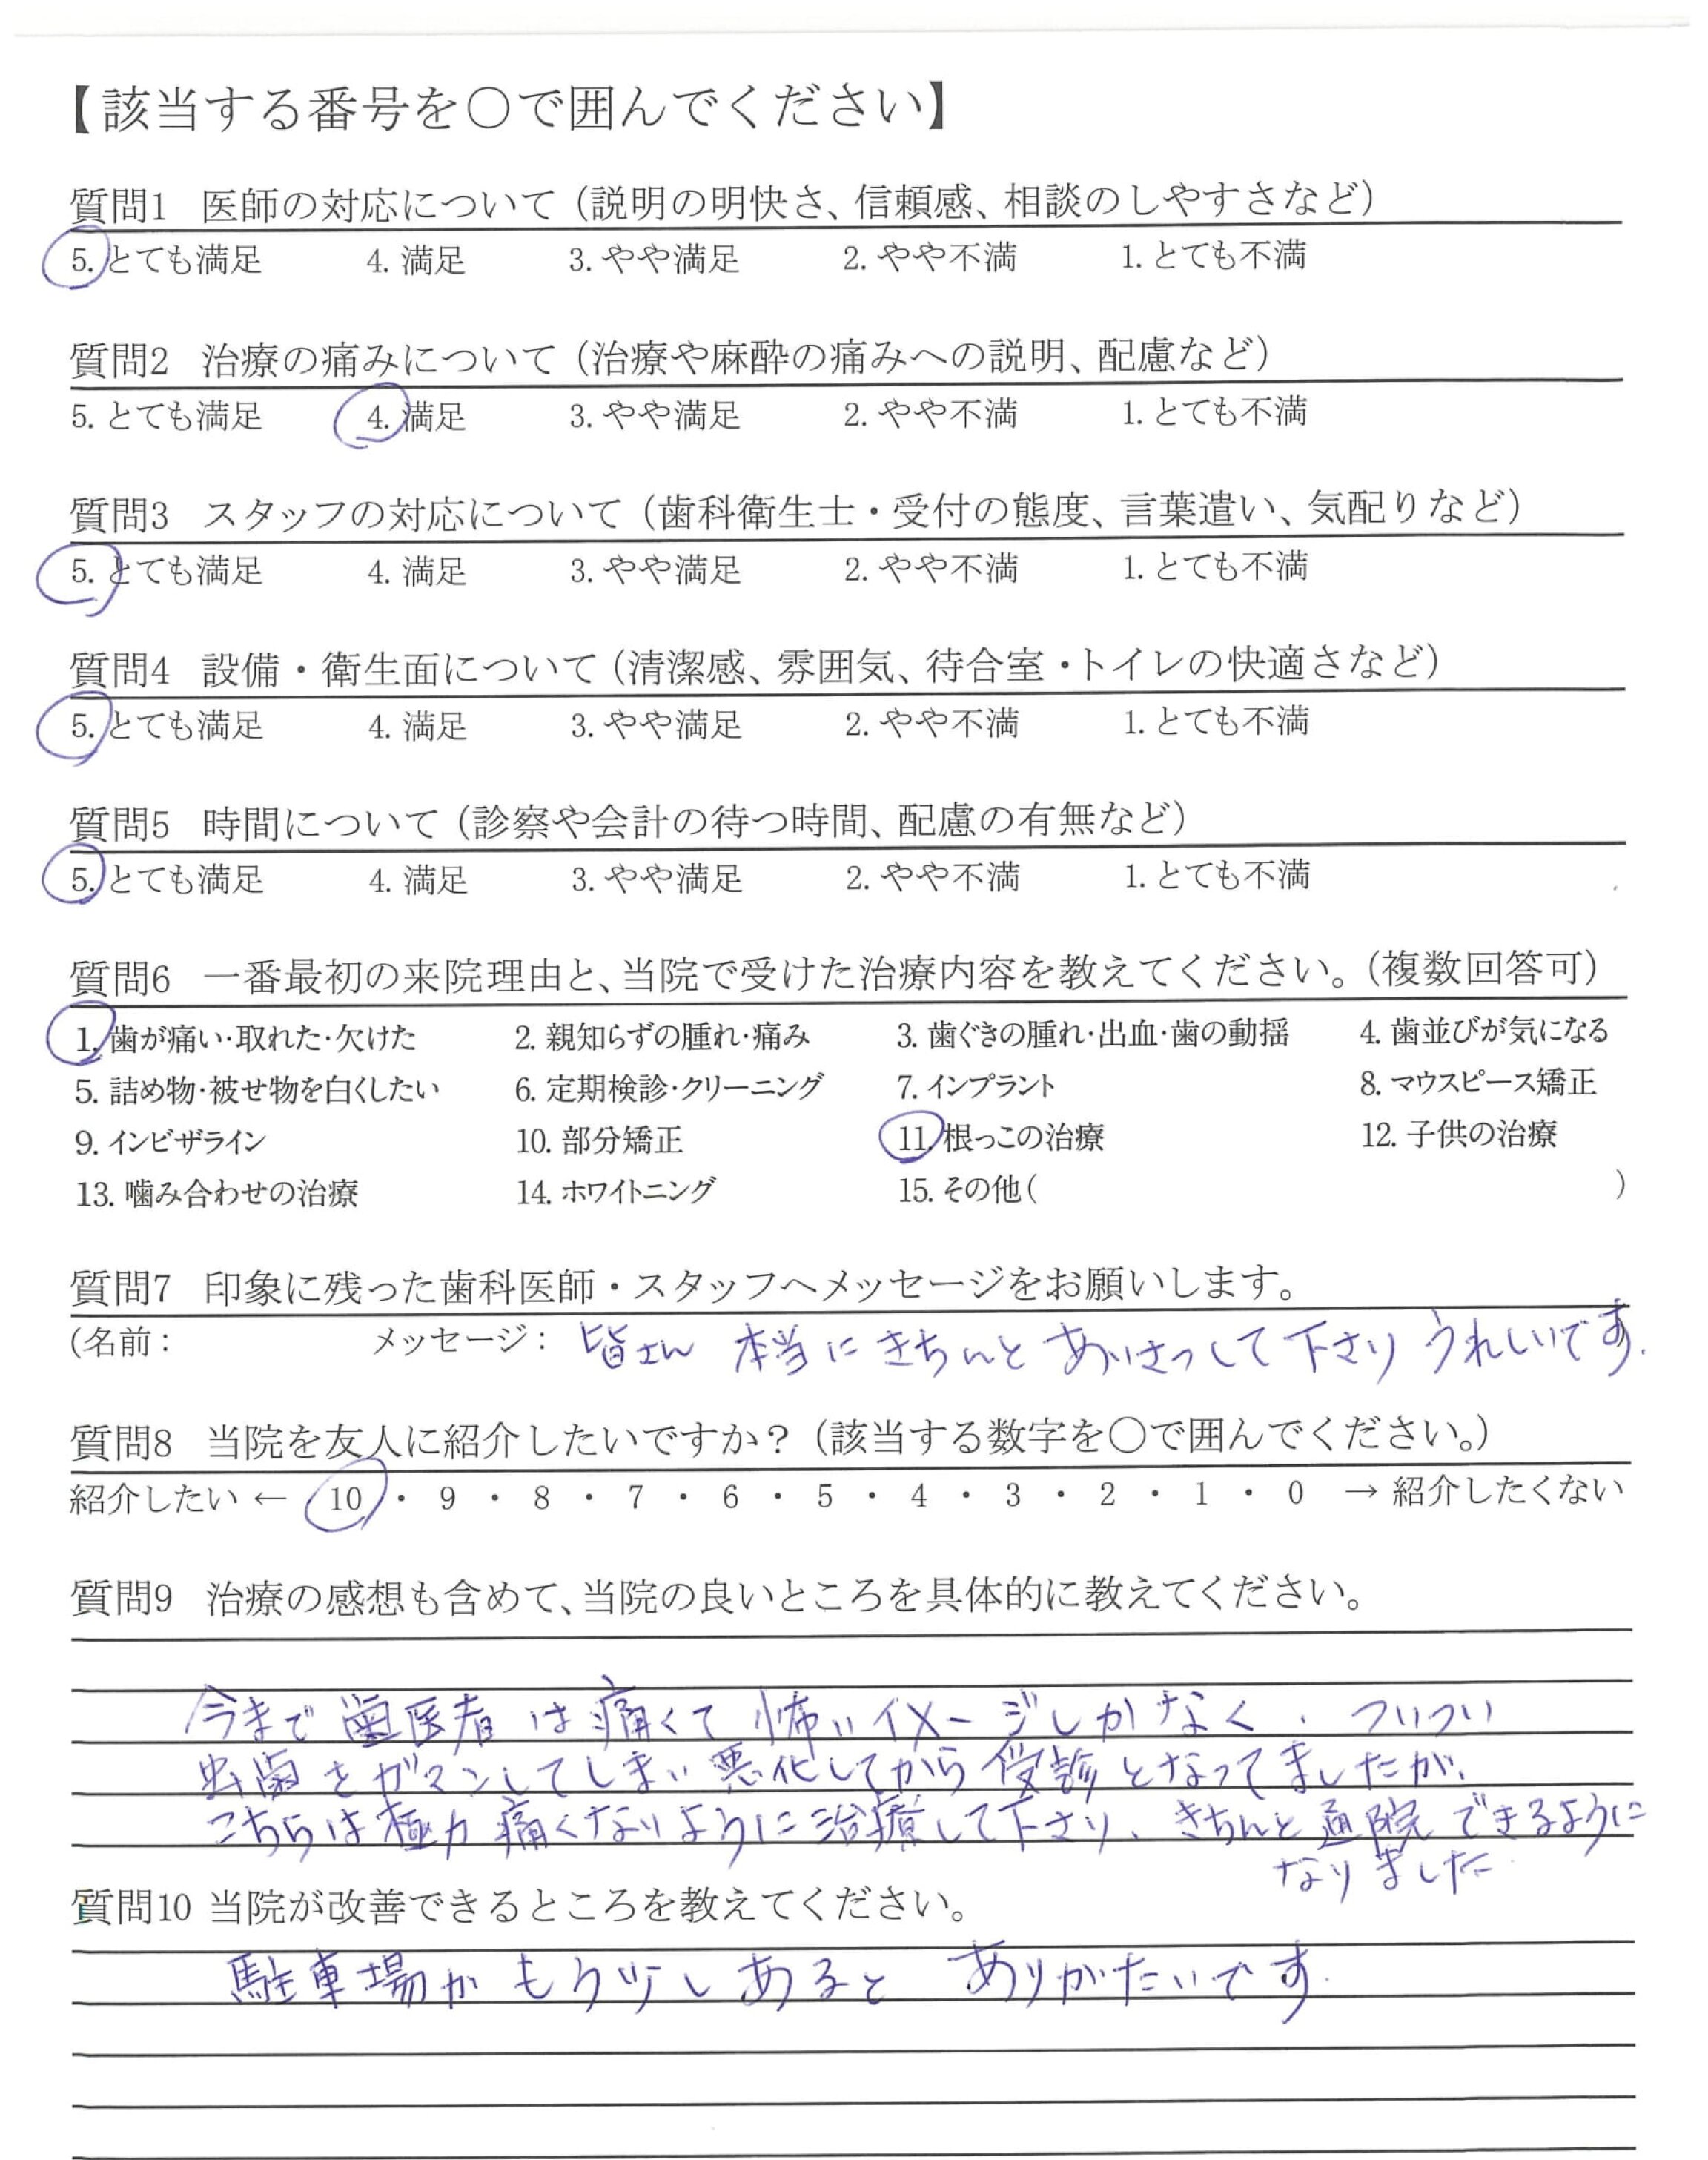 【該当する番号を〇で囲んでください】
質問1 医師の対応について（説明の明快さ、信頼感、相談のしやすさなど）
5. とても満足 4. 満足 3. やや満足 2. やや不満 1. とても不満
質問2 治療の痛みについて（治療や麻酔の痛みへの説明、配慮など）
5. とても満足 4. 満足 3. やや満足 2. やや不満 1. とても不満
質問3 スタッフの対応について（歯科衛生士・受付の態度、言葉遣い、気配りなど）
5. とても満足 4. 満足 3. やや満足 2. やや不満 1. とても不満
質問4 設備・衛生面について（清潔感、雰囲気、待合室・トイレの快適さなど）
5. とても満足 4. 満足 3. やや満足 2. やや不満 1. とても不満
質問5 時間について（診察や会計の待つ時間、配慮の有無など）
5. とても満足 4. 満足 3. やや満足 2. やや不満 1. とても不満
質問6 一番最初の来院理由と、当院で受けた治療内容を教えてください。（複数回答可）
1. 歯が痛い・取れた・欠けた 2. 親知らずの腫れ・痛み 3. 歯ぐきの腫れ・出血・歯の動揺 4. 歯並びが気になる
5. 詰め物・被せ物を白くしたい 6. 定期検診・クリーニング 7. インプラント 8. マウスピース矯正
9. インビザライン 10. 部分矯正 11. 根っこの治療 12. 子供の治療
13. 噛み合わせの治療 14. ホワイトニング 15. その他（ ）
質問7 印象に残った歯科医師・スタッフへメッセージをお願いします。
（名前： メッセージ： 皆さん 本当に きちんと あいさつして下さり うれしいです.
質問8 当院を友人に紹介したいですか？（該当する数字を〇で囲んでください。）
紹介したい ← 10 ・ 9 ・ 8 ・ 7 ・ 6 ・ 5 ・ 4 ・ 3 ・ 2 ・ 1 ・ 0 → 紹介したくない
質問9 治療の感想も含めて、当院の良いところを具体的に教えてください。
今まで 歯医者は痛くて 怖いイメージしかなく、ついつい
虫歯をガマンしてしまい 悪化してから 受診となってましたが、
こちらは極力 痛くないように治療して下さり、きちんと通院できるように
なりました
質問10 当院が改善できるところを教えてください。
駐車場が もう少し あると ありがたいです.